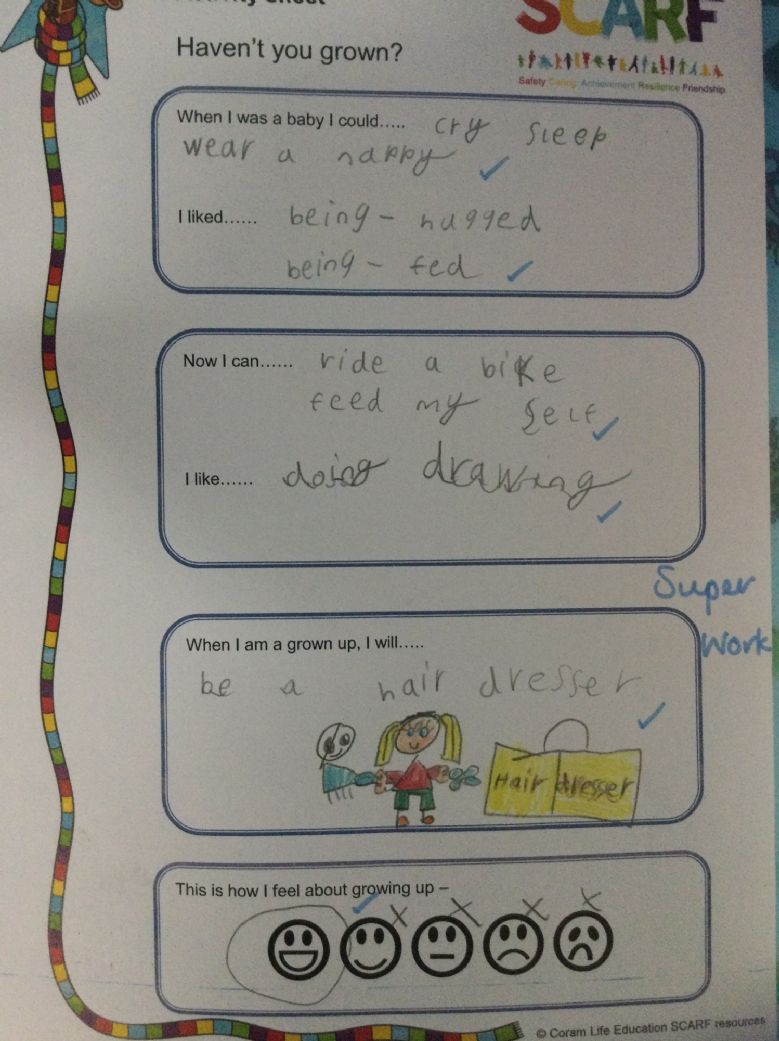 SCARF
Haven't you grown?
Safety Caring Achievement Resilience Friendship
When I was a baby I could..... cry sleep
wear a nappy
I liked...... being - hugged
being - fed
Now I can...... ride a bike
feed my self
I like...... doing drawing
Super
Work
When I am a grown up, I will.....
be a hair dresser
Hair dresser
This is how I feel about growing up –
© Coram Life Education SCARF resources